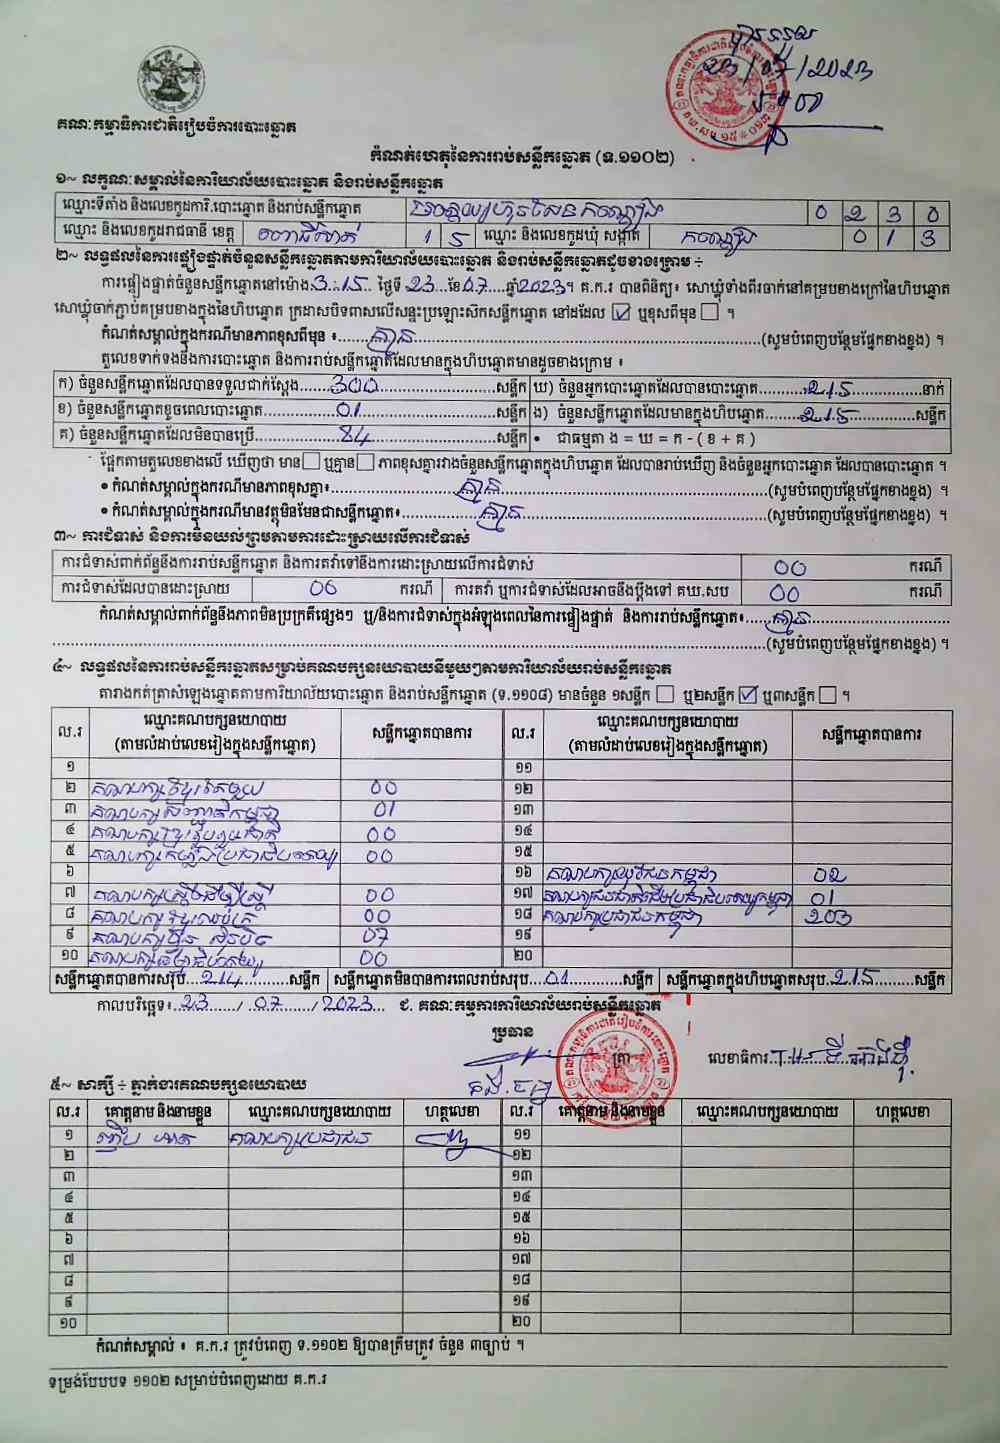 បានទទួល
23/07/2023
គណៈកម្មាធិការជាតិរៀបចំការបោះឆ្នោត
កំណត់ហេតុនៃការរាប់សន្លឹកឆ្នោត (ទ.១១០២)
១~ លក្ខណៈសម្គាល់នៃការិយាល័យបោះឆ្នោត និងរាប់សន្លឹកឆ្នោត
ឈ្មោះទីតាំង និងលេខកូដការិ.បោះឆ្នោត និងរាប់សន្លឹកឆ្នោត 0 2 3 0
ឈ្មោះ និងលេខកូដរាជធានី ខេត្ត ពោធិ៍សាត់ 1 5 ឈ្មោះ និងលេខកូដឃុំ សង្កាត់ 0 1 3
២~ លទ្ធផលនៃការផ្ទៀងផ្ទាត់ចំនួនសន្លឹកឆ្នោតតាមការិយាល័យបោះឆ្នោត និងរាប់សន្លឹកឆ្នោតដូចខាងក្រោម ÷
ការផ្ទៀងផ្ទាត់ចំនួនសន្លឹកឆ្នោតនៅម៉ោង 3:15 ថ្ងៃទី 23 ខែ 07 ឆ្នាំ 2023។ គ.ក.រ បានពិនិត្យ៖ សោឃ្លុំទាំងពីរចាក់នៅគម្របខាងក្រៅនៃហិបឆ្នោត
សោឃ្លុំចាក់ភ្ជាប់គម្របខាងក្នុងនៃហិបឆ្នោត ក្រដាសបិទពាសលើសន្ទះប្រឡោះសិកសន្លឹកឆ្នោត នៅដដែល ☑ ឬខុសពីមុន ☐ ។
កំណត់សម្គាល់ក្នុងករណីមានភាពខុសពីមុន ៖ គ្មាន (សូមបំពេញបន្ថែមផ្នែកខាងខ្នង) ។
តួលេខទាក់ទងនឹងការបោះឆ្នោត និងការរាប់សន្លឹកឆ្នោតដែលមានក្នុងហិបឆ្នោតមានដូចខាងក្រោម ៖
ក) ចំនួនសន្លឹកឆ្នោតដែលបានទទួលជាក់ស្តែង 300 សន្លឹក ឃ) ចំនួនអ្នកបោះឆ្នោតដែលបានបោះឆ្នោត 215 នាក់
ខ) ចំនួនសន្លឹកឆ្នោតខូចពេលបោះឆ្នោត 01 សន្លឹក ង) ចំនួនសន្លឹកឆ្នោតដែលមានក្នុងហិបឆ្នោត 215 សន្លឹក
គ) ចំនួនសន្លឹកឆ្នោតដែលមិនបានប្រើ 84 សន្លឹក • ជាធម្មតា ង = ឃ = ក - ( ខ + គ )
ផ្អែកតាមតួលេខខាងលើ ឃើញថា មាន ☐ ឬគ្មាន ☐ ភាពខុសគ្នារវាងចំនួនសន្លឹកឆ្នោតក្នុងហិបឆ្នោត ដែលបានរាប់ឃើញ និងចំនួនអ្នកបោះឆ្នោត ដែលបានបោះឆ្នោត ។
• កំណត់សម្គាល់ក្នុងករណីមានភាពខុសគ្នា៖ គ្មាន (សូមបំពេញបន្ថែមផ្នែកខាងខ្នង) ។
• កំណត់សម្គាល់ក្នុងករណីមានវត្ថុមិនមែនជាសន្លឹកឆ្នោត៖ គ្មាន (សូមបំពេញបន្ថែមផ្នែកខាងខ្នង) ។
៣~ ការជំទាស់ និងការមិនយល់ព្រមតាមការដោះស្រាយលើការជំទាស់
ការជំទាស់ពាក់ព័ន្ធនឹងការរាប់សន្លឹកឆ្នោត និងការតវ៉ាទៅនឹងការដោះស្រាយលើការជំទាស់ 00 ករណី
ការជំទាស់ដែលបានដោះស្រាយ 00 ករណី ការតវ៉ា ឬការជំទាស់ដែលអាចនឹងប្តឹងទៅ គឃ.សប 00 ករណី
កំណត់សម្គាល់ពាក់ព័ន្ធនឹងភាពមិនប្រក្រតីផ្សេងៗ ឬ/និងការជំទាស់ក្នុងអំឡុងពេលនៃការផ្ទៀងផ្ទាត់ និងការរាប់សន្លឹកឆ្នោត៖ គ្មាន
(សូមបំពេញបន្ថែមផ្នែកខាងខ្នង) ។
៤~ លទ្ធផលនៃការរាប់សន្លឹកឆ្នោតសម្រាប់គណបក្សនយោបាយនីមួយៗតាមការិយាល័យរាប់សន្លឹកឆ្នោត
តារាងកត់ត្រាសំឡេងឆ្នោតតាមការិយាល័យបោះឆ្នោត និងរាប់សន្លឹកឆ្នោត (ទ.១១០៨) មានចំនួន ១សន្លឹក ☐ ឬ២សន្លឹក ☑ ឬ៣សន្លឹក ☐ ។
ល.រ ឈ្មោះគណបក្សនយោបាយ (តាមលំដាប់លេខរៀងក្នុងសន្លឹកឆ្នោត) សន្លឹកឆ្នោតបានការ ល.រ ឈ្មោះគណបក្សនយោបាយ (តាមលំដាប់លេខរៀងក្នុងសន្លឹកឆ្នោត) សន្លឹកឆ្នោតបានការ
១ ១១
២ 00 ១២
៣ 01 ១៣
៤ គណបក្សខ្មែររួបរួមជាតិ 00 ១៤
៥ គណបក្សកម្លាំងប្រជាធិបតេយ្យ 00 ១៥
៦ ១៦ គណបក្សយុវជនកម្ពុជា 02
៧ គណបក្សស្ត្រីដើម្បីស្ត្រី 00 ១៧ 01
៨ 00 ១៨ គណបក្សប្រជាជនកម្ពុជា 203
៩ គណបក្សហ៊្វុនស៊ិនប៉ិច 07 ១៩
១០ គណបក្សធម្មាធិបតេយ្យ 00 ២០
សន្លឹកឆ្នោតបានការសរុប 214 សន្លឹក សន្លឹកឆ្នោតមិនបានការពេលរាប់សរុប 01 សន្លឹក សន្លឹកឆ្នោតក្នុងហិបឆ្នោតសរុប 215 សន្លឹក
កាលបរិច្ឆេទ៖ 23 / 07 / 2023 ជ. គណៈកម្មការការិយាល័យរាប់សន្លឹកឆ្នោត
ប្រធាន
ត្រា
លេខាធិការ
៥~ សាក្សី ÷ ភ្នាក់ងារគណបក្សនយោបាយ
ល.រ គោត្តនាម និងនាមខ្លួន ឈ្មោះគណបក្សនយោបាយ ហត្ថលេខា ល.រ គោត្តនាម និងនាមខ្លួន ឈ្មោះគណបក្សនយោបាយ ហត្ថលេខា
១ គណបក្សប្រជាជន ១១
២ ១២
៣ ១៣
៤ ១៤
៥ ១៥
៦ ១៦
៧ ១៧
៨ ១៨
៩ ១៩
១០ ២០
កំណត់សម្គាល់ ៖ គ.ក.រ ត្រូវបំពេញ ទ.១១០២ ឱ្យបានត្រឹមត្រូវ ចំនួន ៣ច្បាប់ ។
ទម្រង់បែបបទ ១១០២ សម្រាប់បំពេញដោយ គ.ក.រ